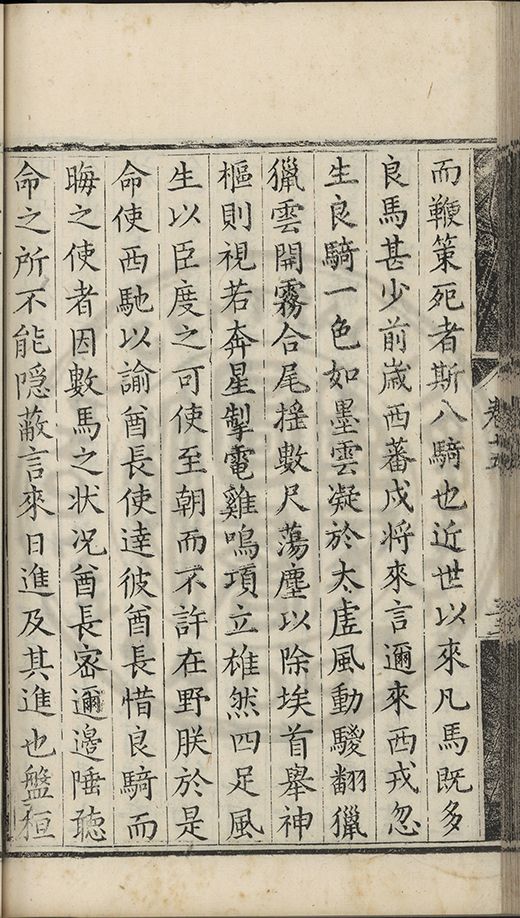 而鞭策死者斯八騎也近世以來凡馬既多
良馬甚少前歲西蕃戍將來言邇來西戎忽
生良騎一色如墨雲凝於太虛風動騣翻獵
獵雲開霧合尾搖數尺蕩塵以除埃首舉神
樞則視若奔星掣電雞鳴項立雄然四足風
生以臣度之可使至朝而不許在野朕於是
命使西馳以諭酋長使達彼酋長惜良騎而
晦之使者因數馬之狀况酋長密邇邊陲聽
命之所不能隱蔽言來日進及其進也盤桓